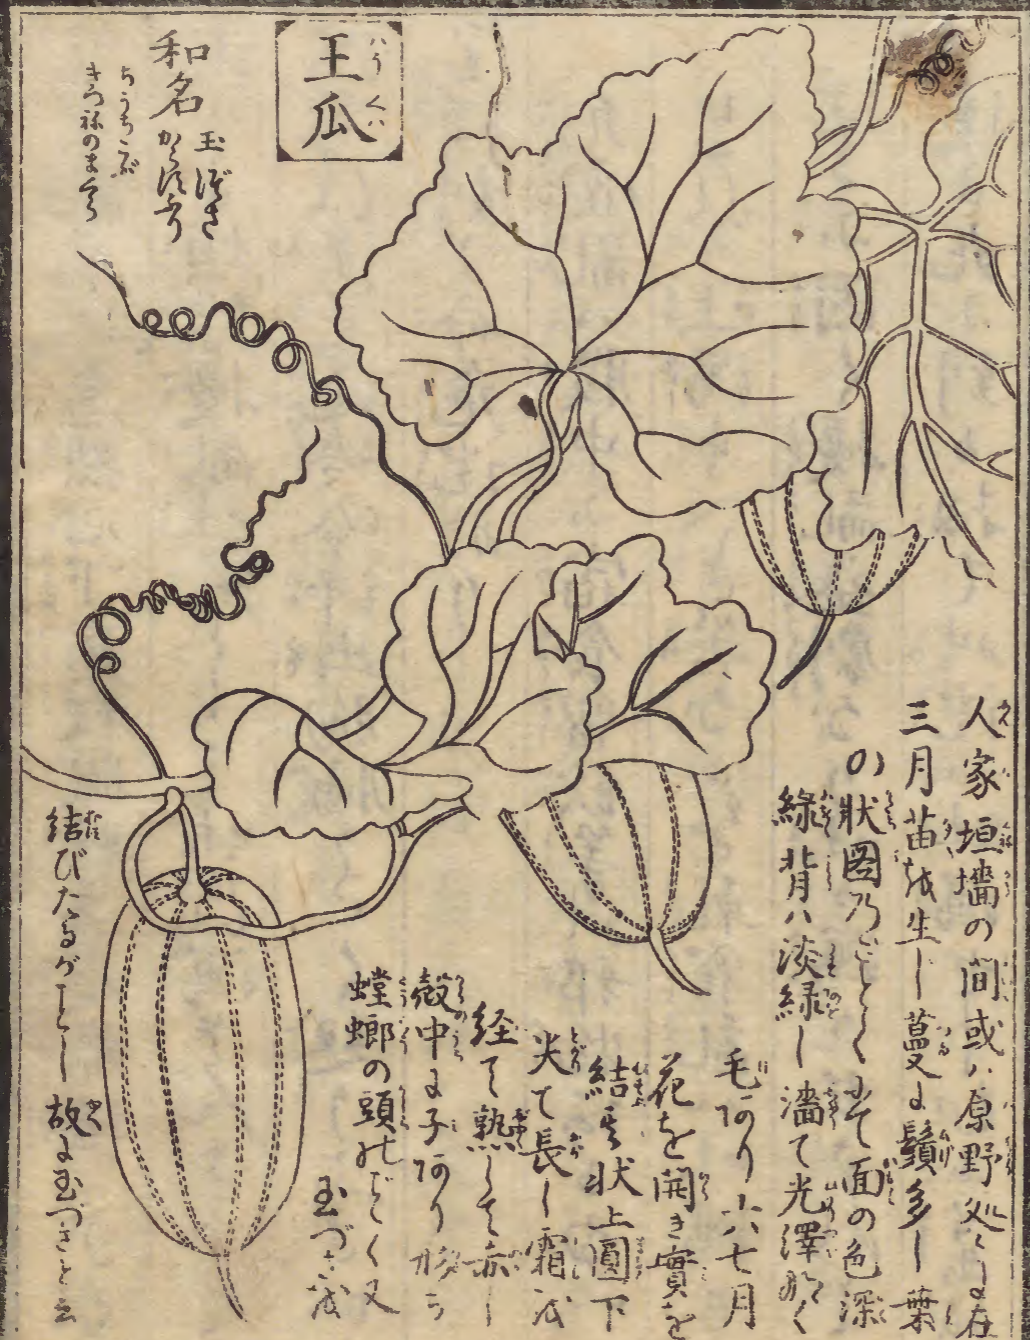 王瓜
わうくい
和名
玉づさ
からすうり
ちうちこぶ
きつねのまくら
人家垣墻の間或ハ原野処〻に在
三月苗を生じ蔓に鬚多し葉
の状圏のごとくにて面の色深
緑背ハ淡緑し濇て光澤なく
毛あり六七月
花を開き實を
結ぶ状上圓下
尖て長し霜を
経て熟して赤し
殻中に子あり形ち
螳螂の頭のごとく又
玉づさを
結びたるがごとし故に玉づさと云